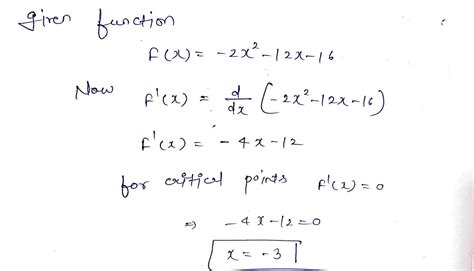 Given function
f(x) = -2x² - 12x - 16
Now f'(x) = d/dx (-2x² - 12x - 16)
f'(x) = - 4x - 12
for critical points f'(x) = 0
⇒ -4x - 12 = 0
x = -3